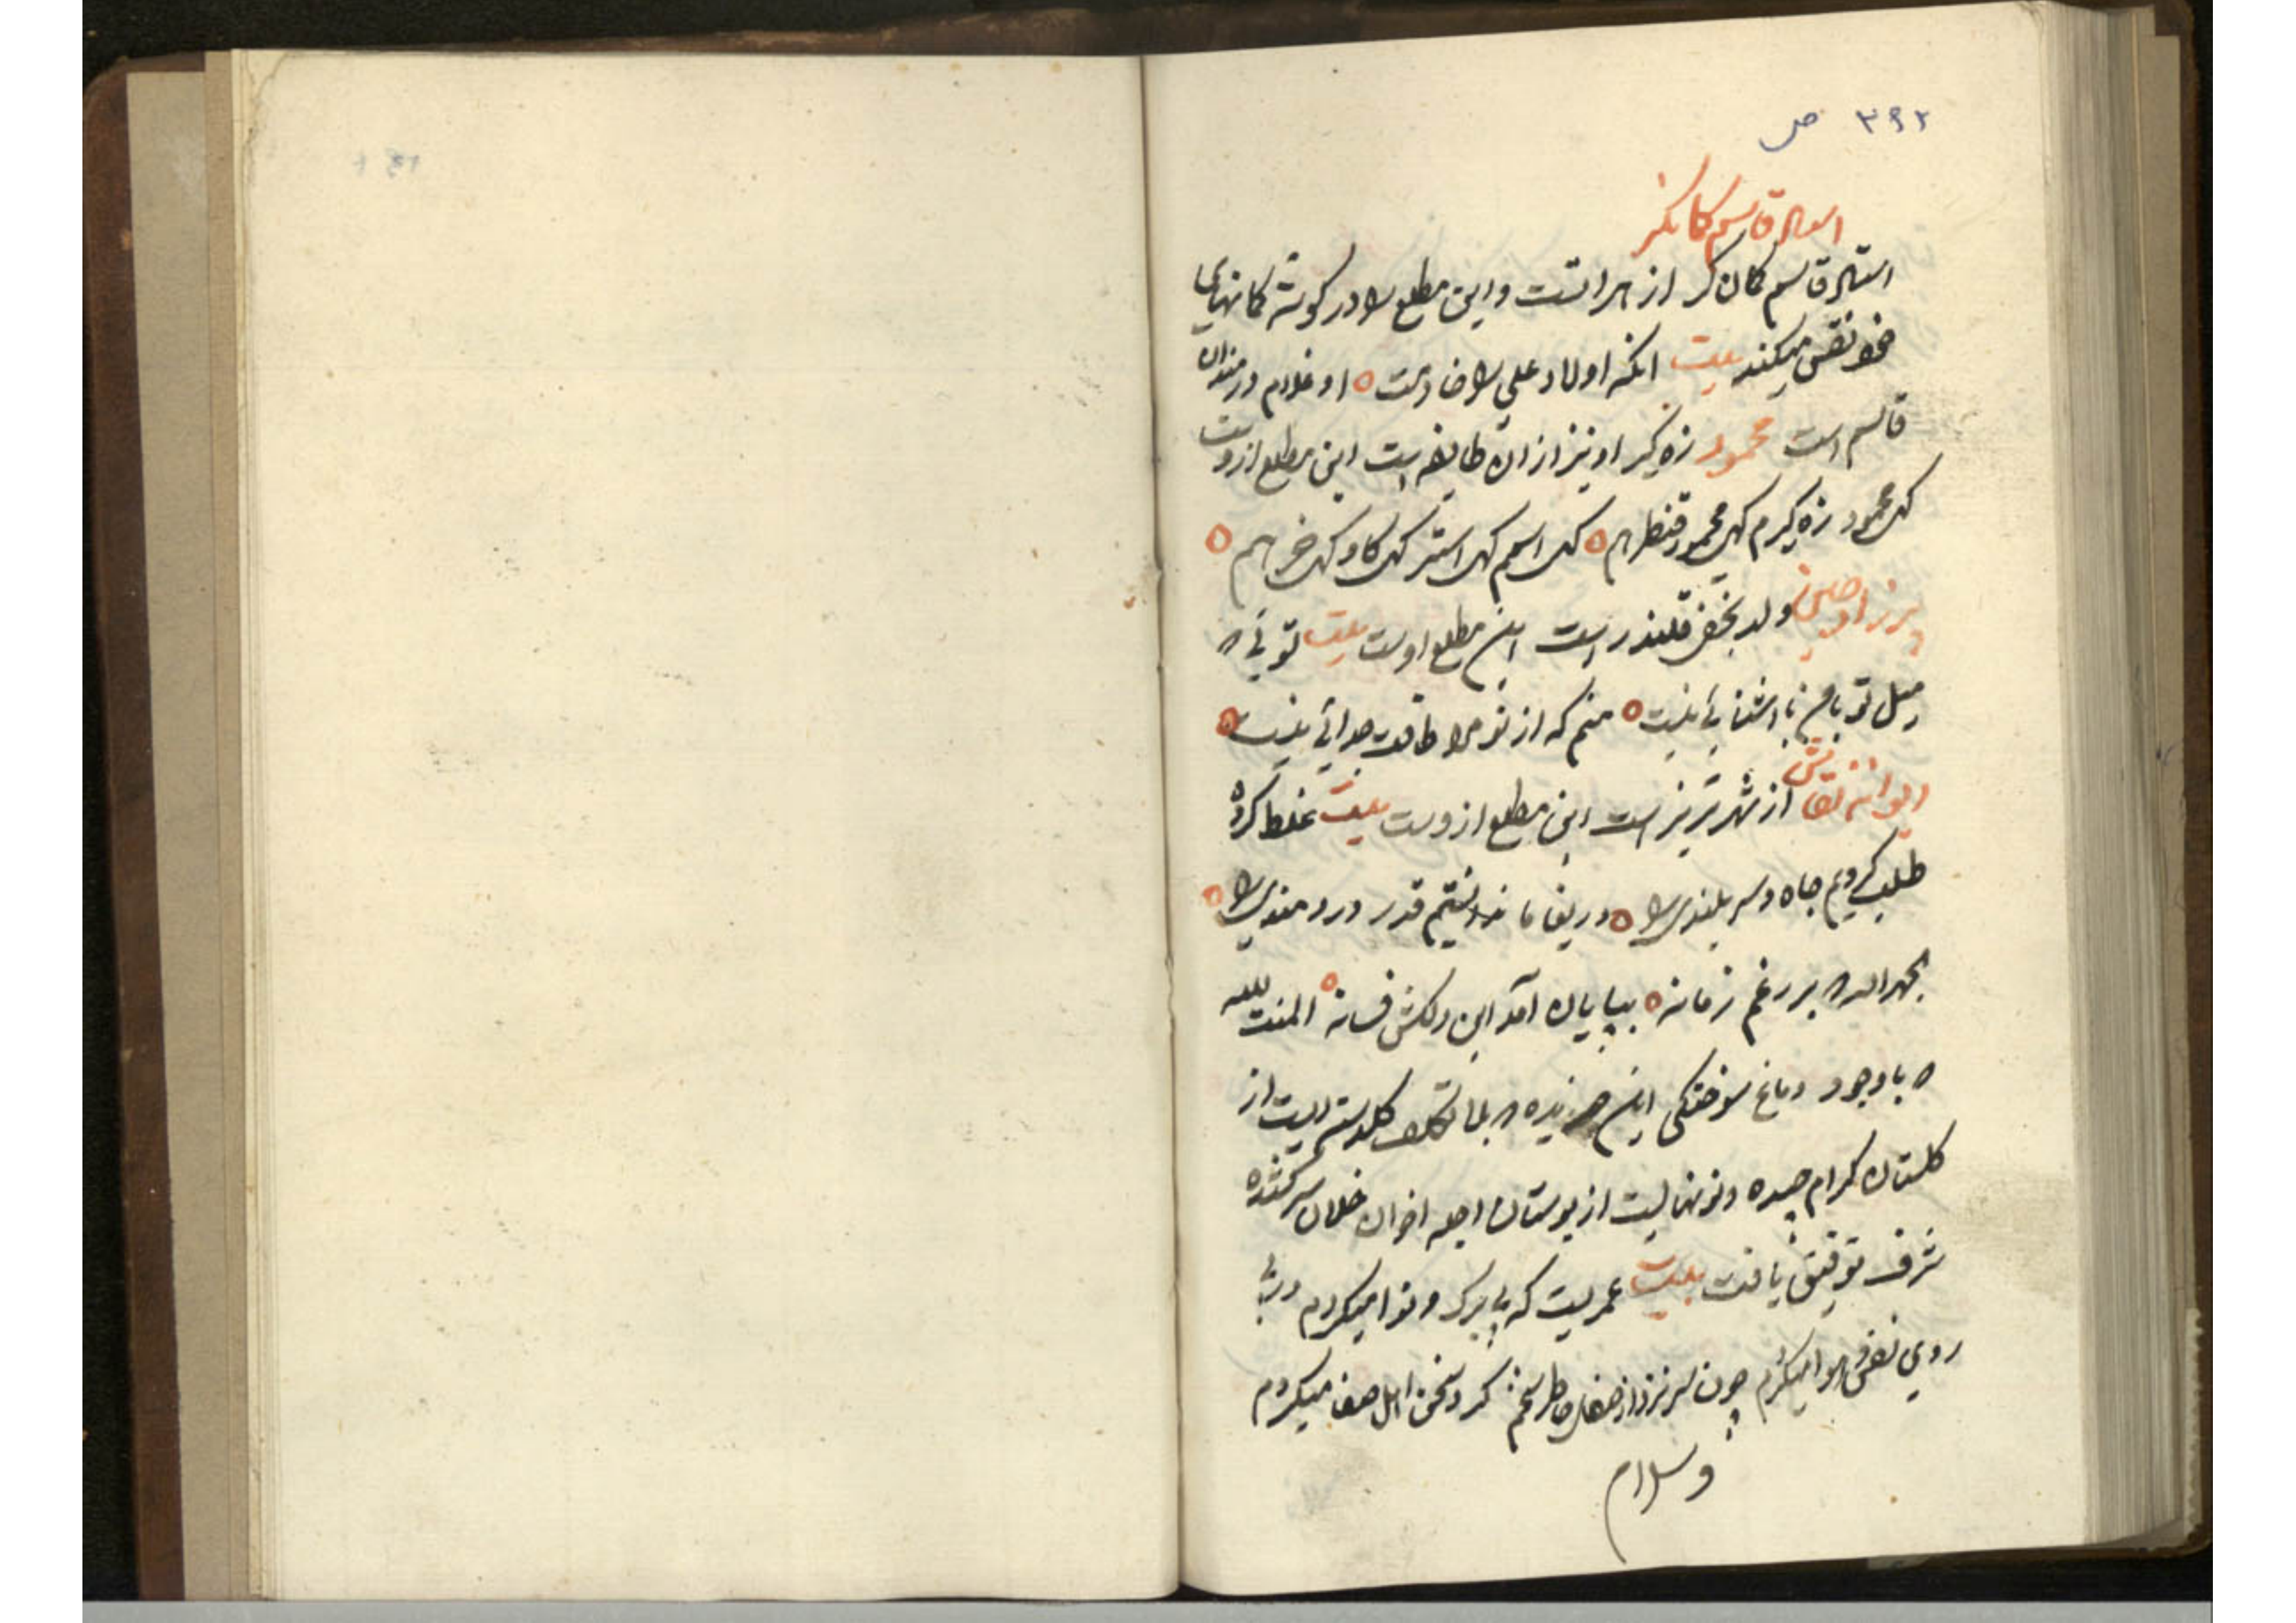 ۳۹۲ ص
استاد قاسم کمانگر
استاد قاسم کمان گر از هراتست و این مطلع را در گوشه کمانهای
خود نقش میکند بیت انکه اولاد علی را خادمست او غلام درمندان
قاسم است محمود زه گیر او نیز از ان طایفه است این مطلع از وست
که محمود زه گیرم که محمود قنطرهم که اسبم که استر که گاو که خرهم
ولد نجفی قلندر است این مطلع اوست بیت توئی که
میل تو با من باشنائی نیست منم که از تو مرا طاقت جدائی نیست
دیوانه نقاش از شهر تبریز است این مطلع از وست بیت غلط کرده
طلب کردیم جاه و سر بلندی را دریغا ما ندانستیم قدر دردمندی را
بحمد الله که بر رغم زمانه بپایان آمد این دلکش فسانه المنت لله
که باوجود دماغ سوختگی این جریده که بلا تکلف گلدسته ایست از
گلستان کرام چیده و نونهالیست از بوستان اجله اخوان خلان سر کشیده
شرف توفیق یافت بیت عمریست که بی برگ و نوا میگردم در پی
روی نفس و هوا میگردم چون سر نزد از صفای خاطر سخنم گرد سخن اهل صفا میگردم
وسلام